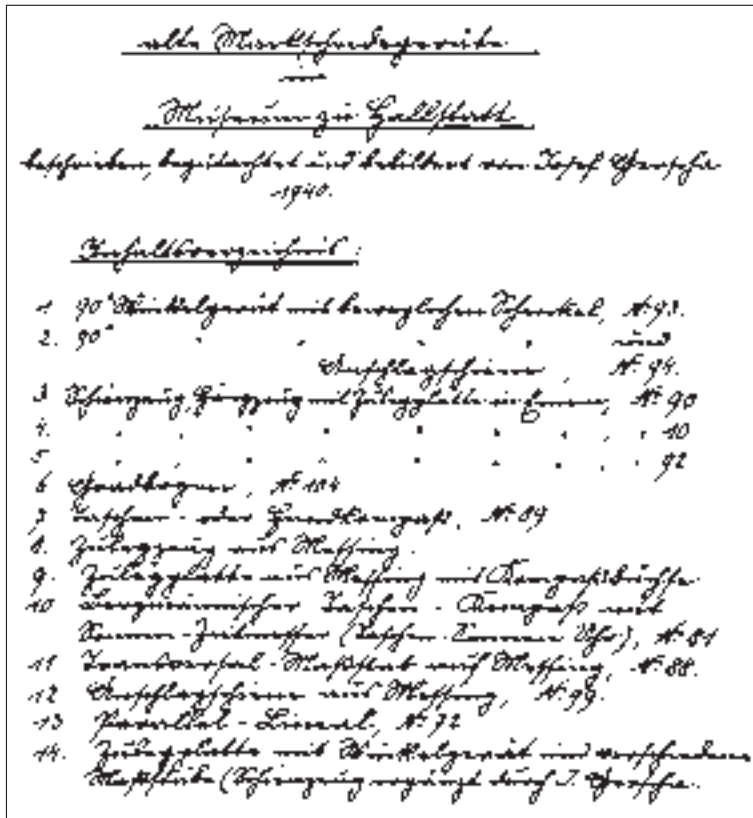 alte Markscheidegeräte
im
Museum zu Hallstatt
beschrieben, begutachtet und bebildert von Josef
1940.
Inhaltsverzeichnis:
1 90° Winkelgerät mit beweglichen Schenkel, № 93.
2. 90° " " " " und
Anschlagschiene, № 94.
3 Schinzeug, Hängzeug mit Zulegplatte in Einem, № 90
4. " " " " " " " " 10
5 " " " " " " " 92
6 Gradbogen, № 104
7 Taschen- oder Handkompaß, № 89
8. Zulegzeug aus Messing.
9. Zulegplatte aus Messing mit Kompaßbüchse
10 Bergmännischer Taschen-Kompaß mit
Sonnen-Zeitmesser (Taschen Sonnen Uhr), № 81
11 Transversal-Maßstab aus Messing, № 88.
12 Anschlagschiene aus Messing, № 99.
13 Parallel-Lineal, № 72
14. Zulegplatte mit Winkelgerät und verschiedene
Maßstäbe (Schinzeug ergänzt durch J.